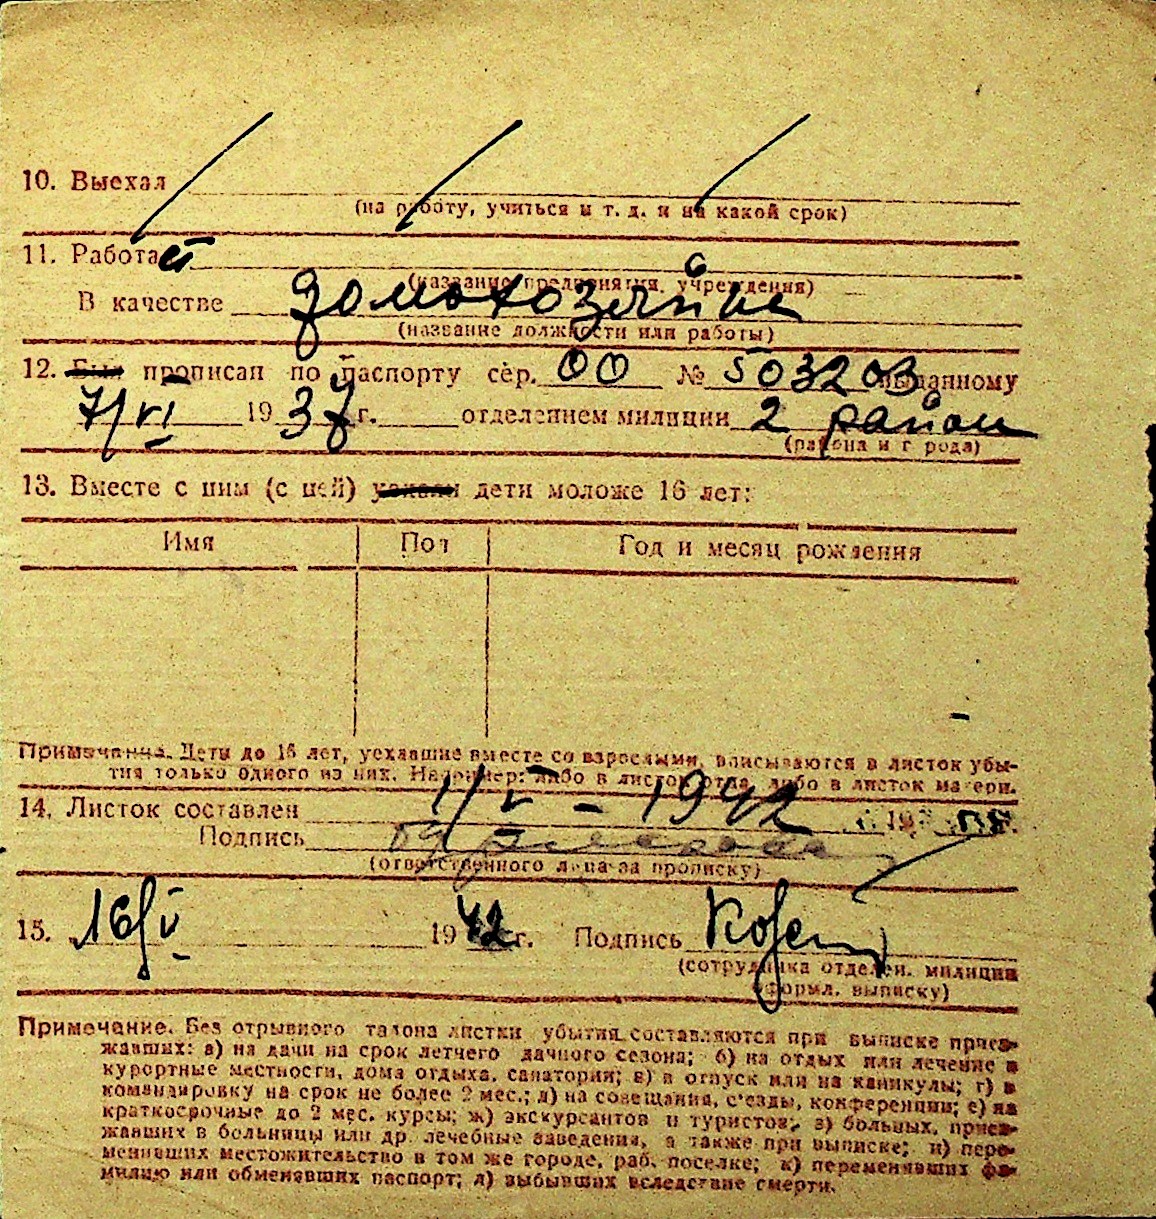 10. Выехал
(на работу, учиться и т. д. и на какой срок)
11. Работает
(название предприятия, учреждения)
В качестве домохозяйка
(название должности или работы)
12. Был прописан по паспорту сер. 00 № 503203 выданному
7/VI 1937 г. отделением милиции 2 район
(района и города)
13. Вместе с ним (с ней) уехали дети моложе 16 лет:
Имя Пол Год и месяц рождения
Примечание. Дети до 16 лет, уехавшие вместе со взрослыми, вписываются в листок убы-
тия только одного из них. Например: либо в листок отца, либо в листок матери.
14. Листок составлен 1/V - 1942 г.
Подпись
(ответственного лица за прописку)
15. 16/V 1942 г. Подпись
(сотрудника отделен. милиции
оформл. выписку)
Примечание. Без отрывного талона листки убытия составляются при выписке приез-
жавших: а) на дачи на срок летнего дачного сезона; б) на отдых или лечение в
курортные местности, дома отдыха, санатории; в) в отпуск или на каникулы; г) в
командировку на срок не более 2 мес.; д) на совещания, с'езды, конференции; е) на
краткосрочные до 2 мес. курсы; ж) экскурсантов и туристов; з) больных, приез-
жавших в больницы или др. лечебные заведения, а также при выписке; и) пере-
менивших местожительство в том же городе, раб. поселке; к) переменивших фа-
милию или обменявших паспорт; л) выбывших вследствие смерти.